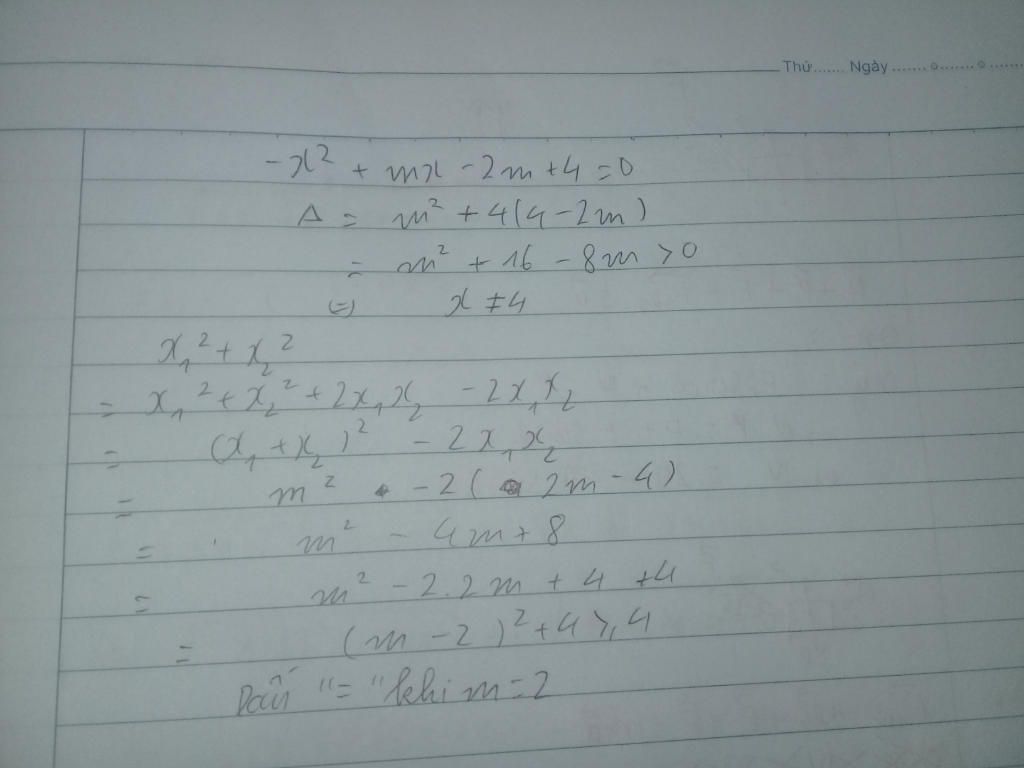 Thứ....... Ngày.......o.......o.......
-x² + mx - 2m + 4 = 0
Δ = m² + 4(4 - 2m)
= m² + 16 - 8m > 0
(=) x ≠ 4
x₁² + x₂²
= x₁² + x₂² + 2x₁x₂ - 2x₁x₂
= (x₁ + x₂)² - 2x₁x₂
= m² - 2(2m - 4)
= m² - 4m + 8
= m² - 2.2m + 4 + 4
= (m - 2)² + 4 ≥ 4
Dấu "=" khi m = 2